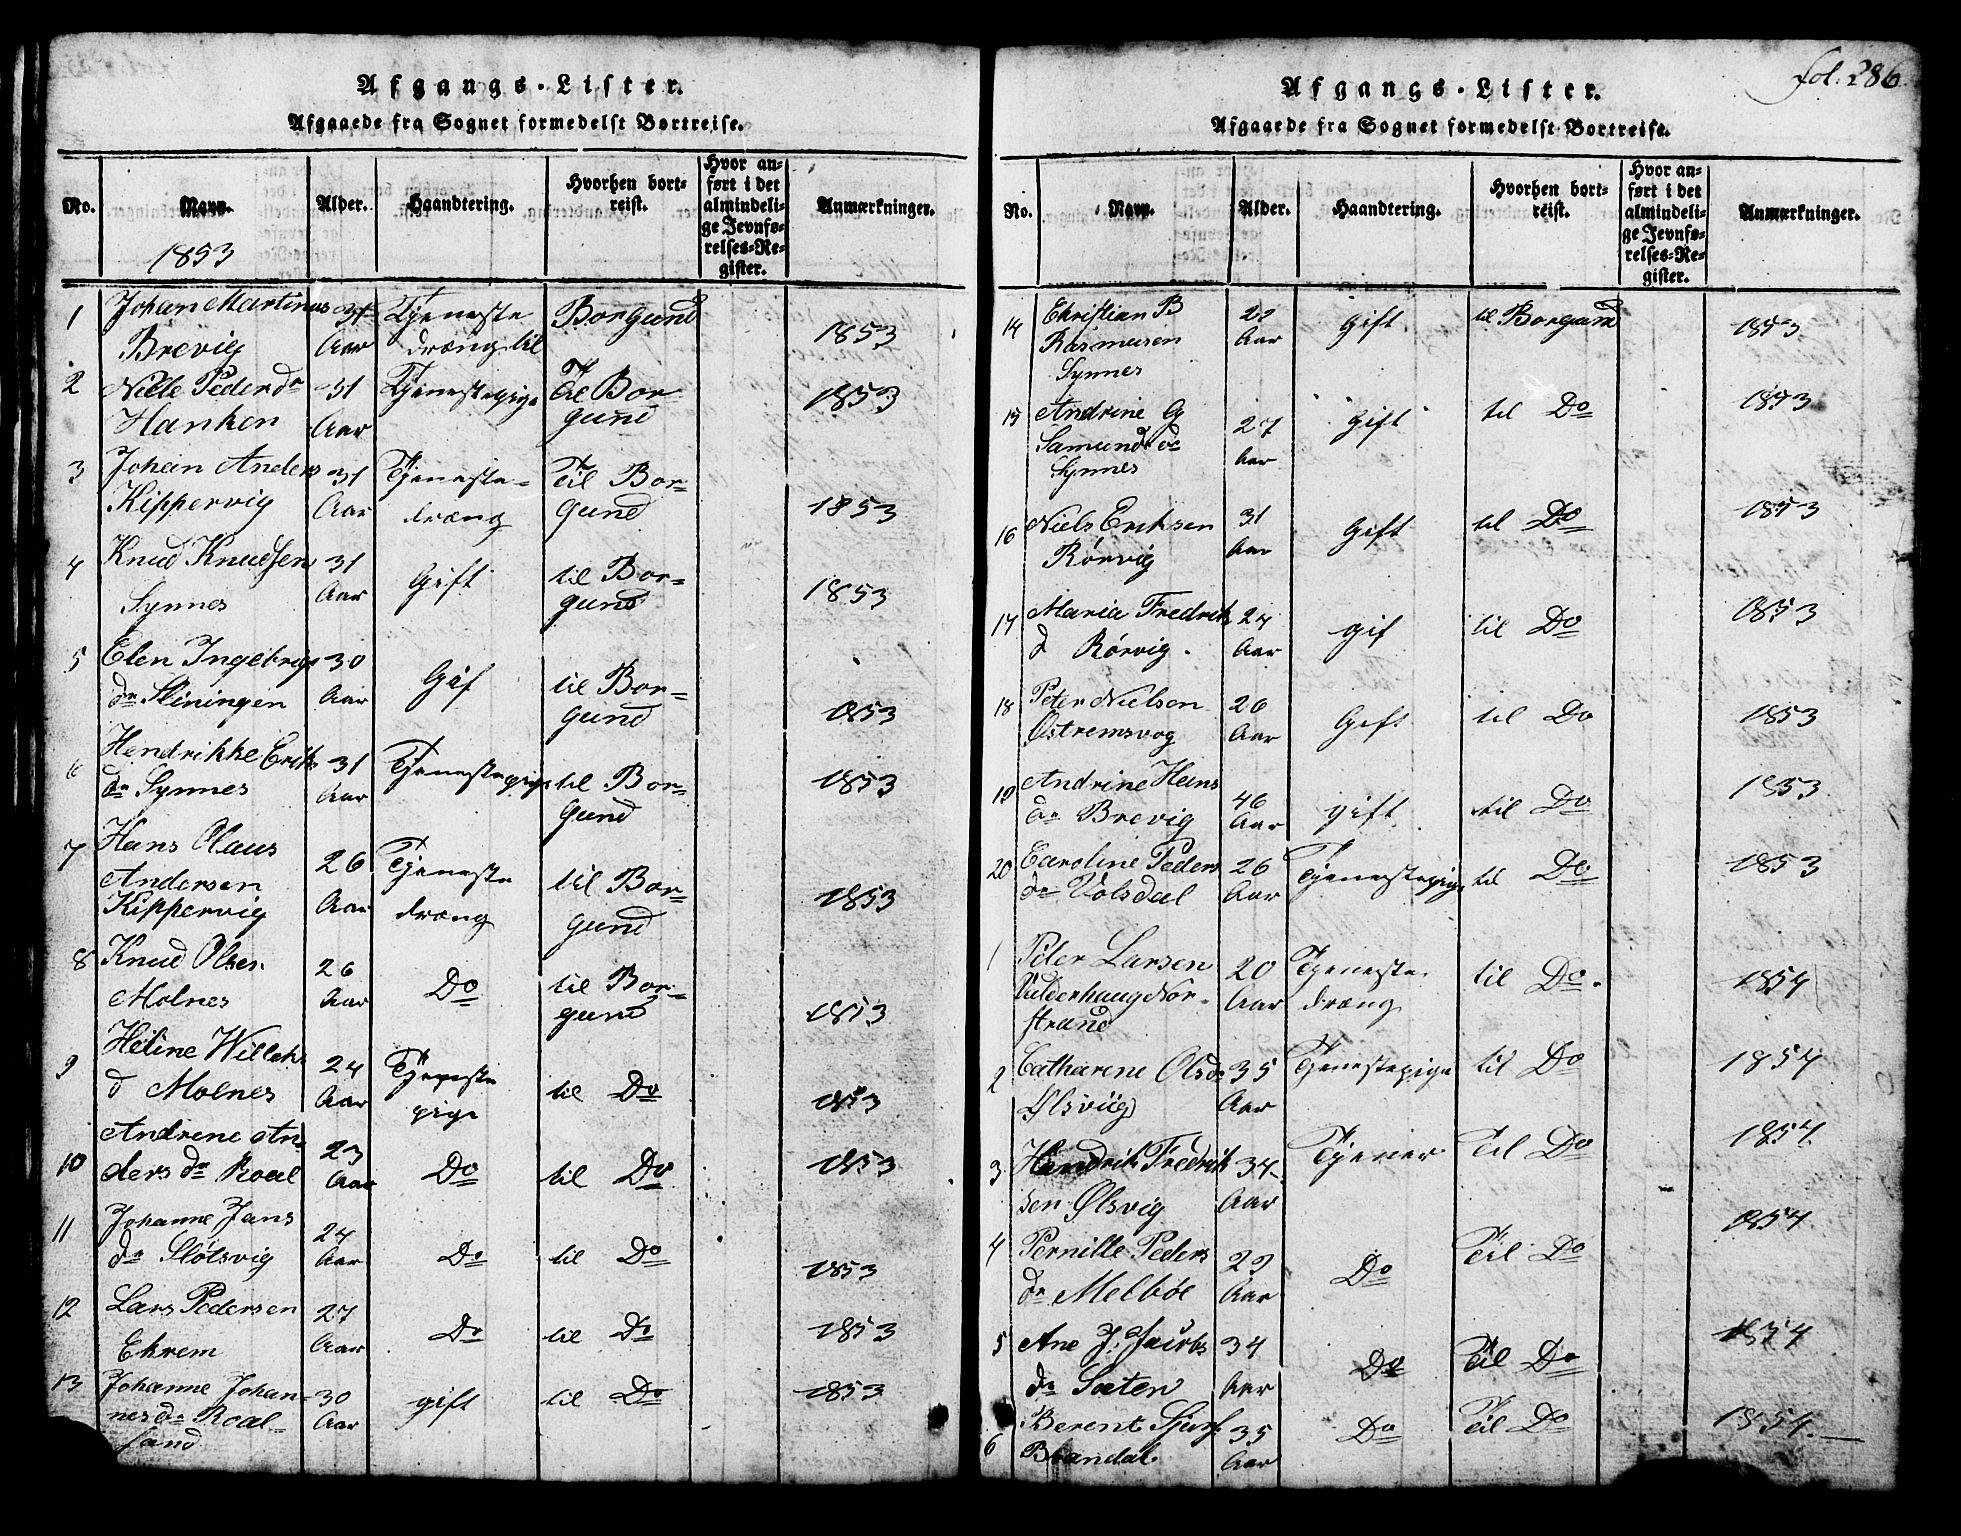 Afgangs-Lister.
Afgaaede fra Sognet formedelst Bortreise.
No. Navn. Alder. Haandtering. Hvorhen bortreist. Hvor anført i det almindelige Jevnførelses-Register. Anmærkninger.
1853
1 Johan Martinus Brevig 31 Aar Tjeneste dræng til Borgund 1853
2 Nille Peder dr Hanken 31 Aar Tjenestepige Til Borgund 1853
3 Johan Anders Kippervig 31 Aar Tjeneste-dræng Til Borgund 1853
4 Knud Knudsen Synnes 31 Aar Gift til Borgund 1853
5 Elen Ingebrigs dr Sliningen 30 Aar Gif til Borgund 1853
6 Hendrikke Eriks dr Synnes 31 Aar Tjenestepige til Borgund 1853
7 Hans Olaus Andersen Kippervig 26 Aar Tjeneste dræng til Borgund 1853
8 Knud Olsen Molnes 26 Aar Do til Borgund 1853
9 Heline Willehs d Molnes 24 Aar Tjeneste pige til Do 1853
10 Andrene Anders dr Roal 23 Aar Do til Do 1853
11 Johanne Jans dr Slotsvig 24 Aar Do til Do 1853
12 Lars Pedersen Ekrem 27 Aar Do til Do 1853
13 Johanne Johannes dr Roalsand 30 Aar gift til Do 1853
fol. 286.
Afgangs-Lister.
Afgaaede fra Sognet formedelst Bortreise.
No. Navn. Alder. Haandtering. Hvorhen bortreist. Hvor anført i det almindelige Jevnførelses-Register. Anmærkninger.
14 Christian B Rasmusen Synnes 22 Aar gift til Borgund 1853
15 Andrine G Samunds dr Synnes 27 Aar gift til Do 1853
16 Niels Eriksen Rørvig 31 Aar Gift til Do 1853
17 Maria Fredriks d Rørvig. 24 Aar gif til Do 1853
18 Peter Nielsen Østremsvog 26 Aar Gift til Do 1853
19 Andrine Hans dr Brevig 46 Aar gift til Do 1853
20 Caroline Peders dr Volsdal 26 Aar Tjenestepige til Do 1853
1 Peter Larsen Valderhaug Norstrand 20 Aar Tjeneste dræng til Do. 1854
2 Catharene Olsdr Ølsviig 35 Aar Tjenestepige til Do 1854
3 Hendrik Fredriksen Ølsvig 34 Aar Tjener Til Do 1854
4 Pernille Peders dr Melbøe 29 Aar Do Til Do 1854
5 Ane J. Jacobs dr Sæten 34 Aar Do Til Do 1854
6 Berent Sjurs Brandal. 35 Aar Do Til Do 1854.